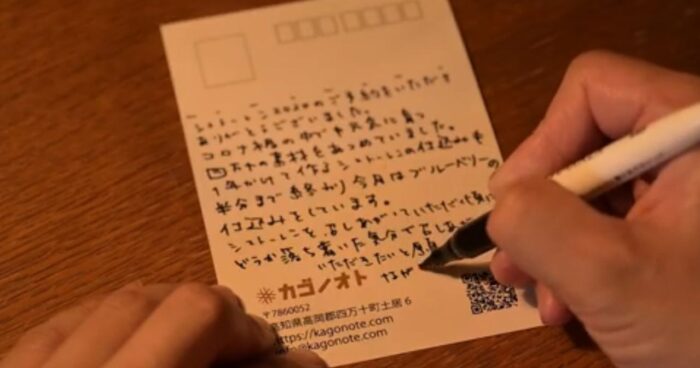 シュトーレン2020のご予約をいただき
ありがとうございました。
コロナ禍の中でも元気に育つ
日本の素材をあつめていました。
1年かけて作るシュトーレンの仕込みも
半分まで終わり 今月はブルーベリーの
仕込みをしています。
シュトーレンを召しあがっていただく
どうか落ち着いた気分で召しあが
いただきたいと願
なが
カゴノオト
〒7860052
高知県高岡郡四万十町土居 6
https://kagonote.com
kagonote.com